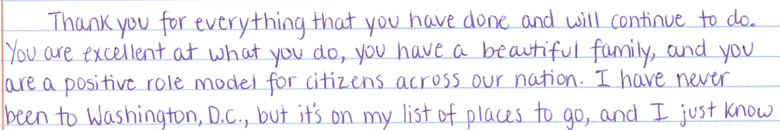 Thank you for everything that you have done and will continue to do.
You are excellent at what you do, you have a beautiful family, and you
are a positive role model for citizens across our nation. I have never
been to Washington, D.C., but it's on my list of places to go, and I just know